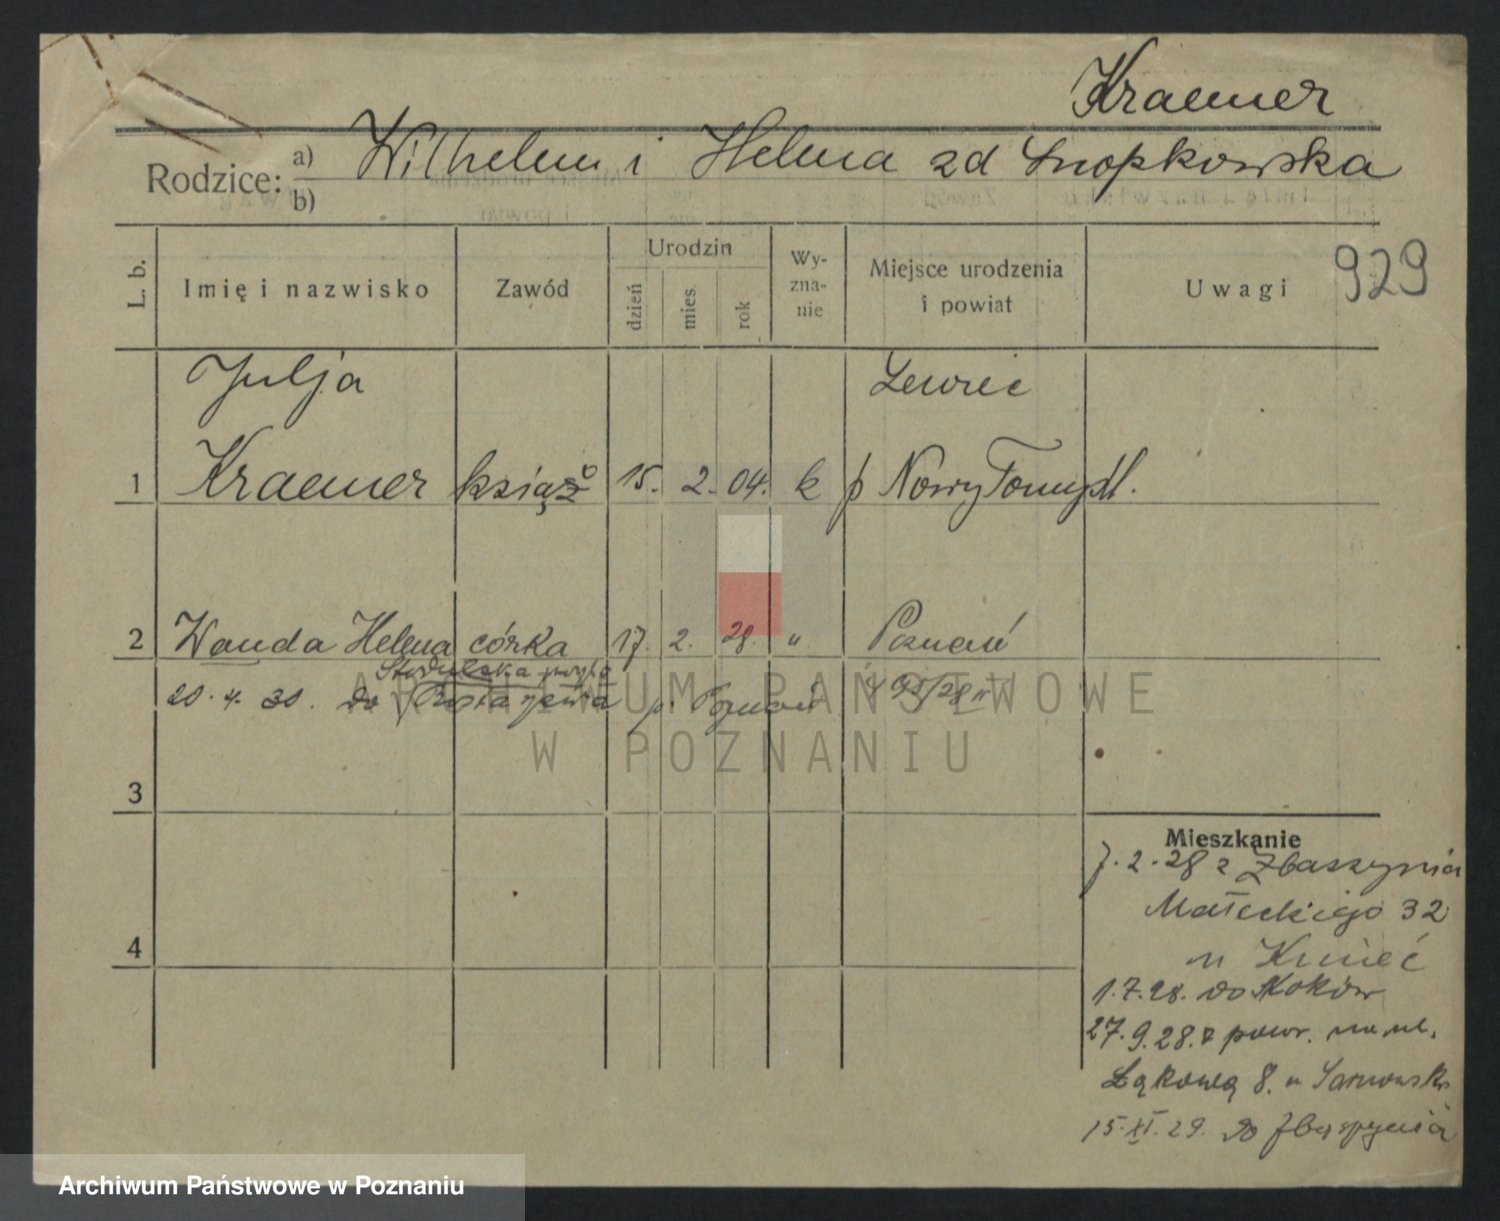 Kraemer
Rodzice: a) Wilhelm i Helena zd Snopkowska
b)
929
L. b.
Imię i nazwisko
Zawód
Urodzin
dzień
mies
rok
Wy-
zna-
nie
Miejsce urodzenia
i powiat
Uwagi
Julja
1 Kraemer książ 15. 2. 04. k p Nowy Tomyśl.
2 Wanda Helena córka 17. 2. 28. " Poznań
20. 4. 30. do p. Poznań
3
4
Mieszkanie
7.2.28 z Zbaszynia
Małeckiego 32
u Kmieć
1.7.28. do Moków
27.9.28. powr. na ul.
Łąkową 8. u Sarnowsk
15.XI.29. do Zbąszynia
ARCHIWUM PAŃSTWOWE
W POZNANIU
Archiwum Państwowe w Poznaniu